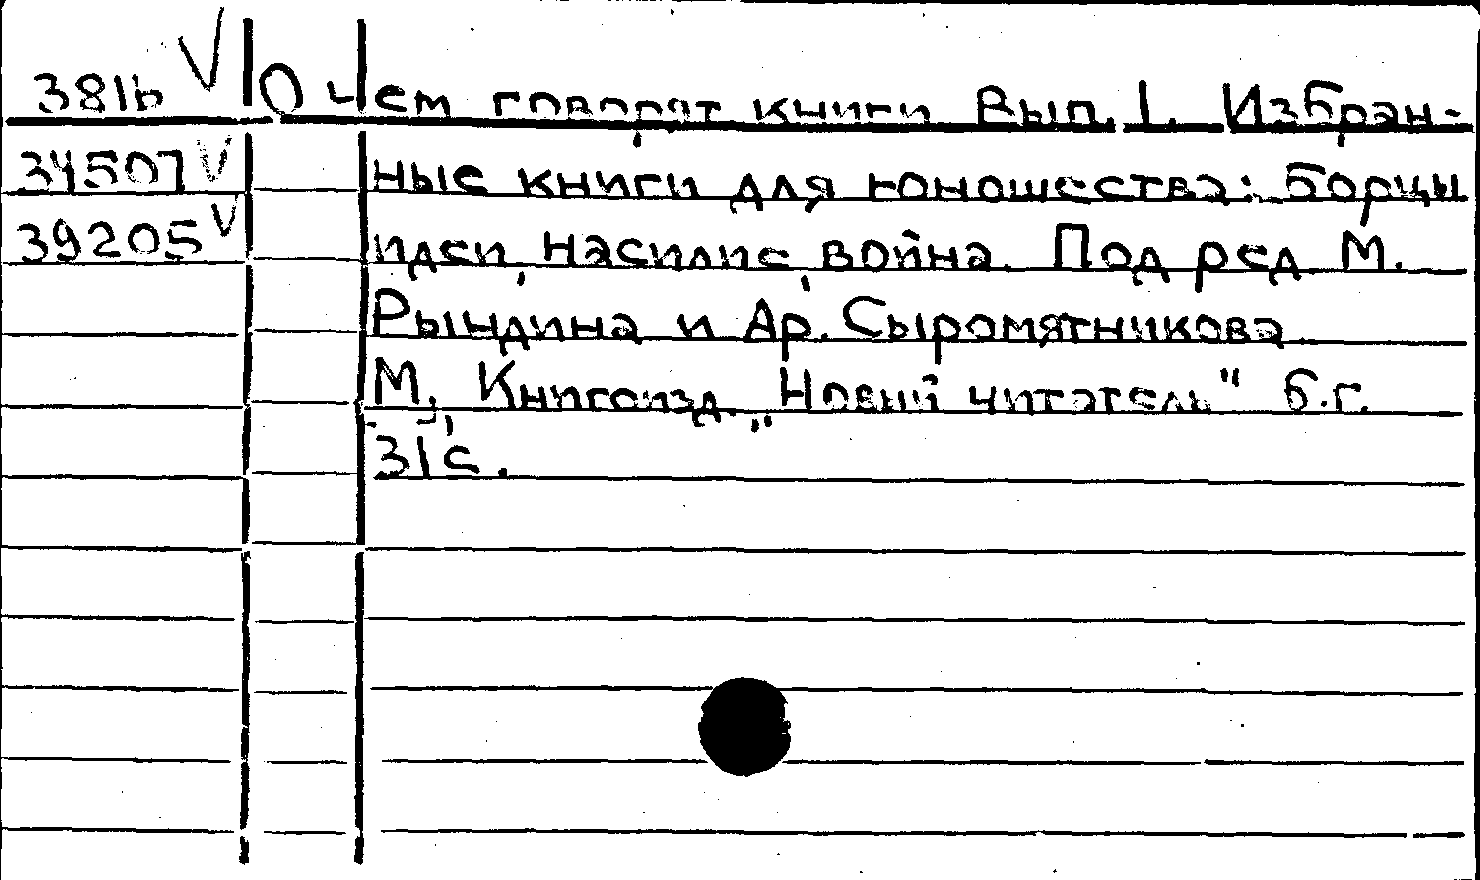 3816 V О чем говорят книги Вып. 1. Избран-
34507 V ные книги для юношества: борцы
39205 V идеи, насилие, война. Под ред М.
Рындина и Ар. Сыромятникова
М., Книгоизд. „Новый читатель" б.г.
31с.